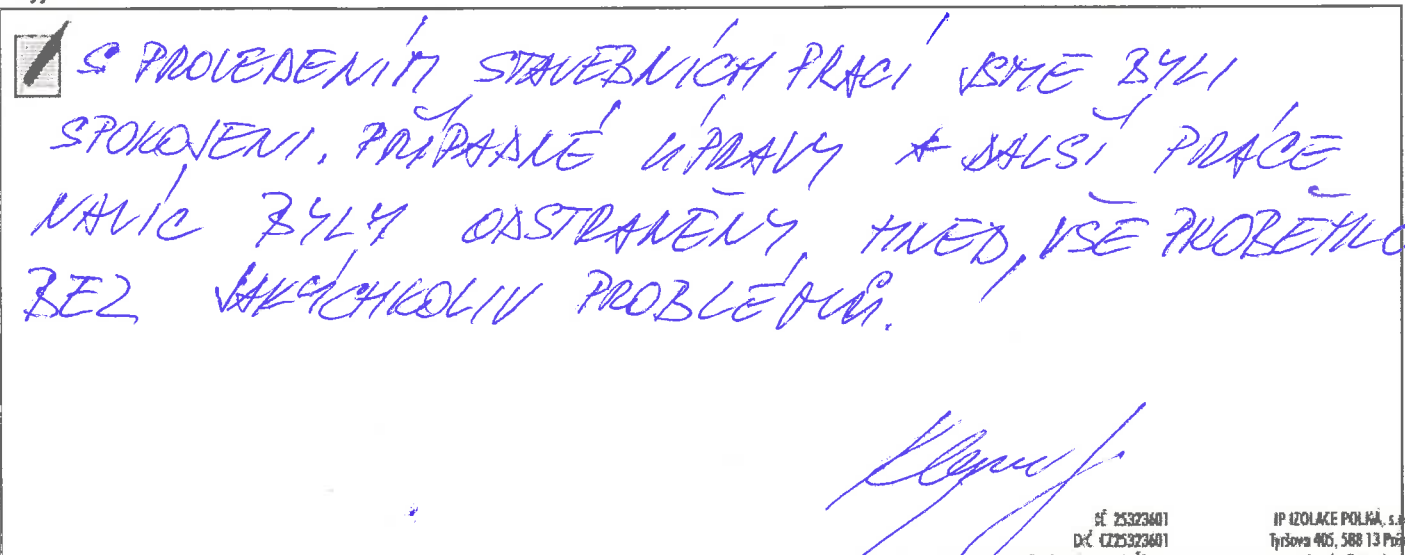 S PROVEDENÍM STAVEBNÍCH PRACÍ JSME BYLI
SPOKOJENI. PŘÍPADNÉ ÚPRAVY A DALŠÍ PRÁCE
NAVÍC BYLY ODSTRANĚNY, HNED, VŠE PROBĚHLO
BEZ JAKÝCHKOLIV PROBLÉMŮ.
IČ 25323601
DIČ CZ25323601
IP IZOLACE POLNÁ, s.
Tyršova 405, 588 13